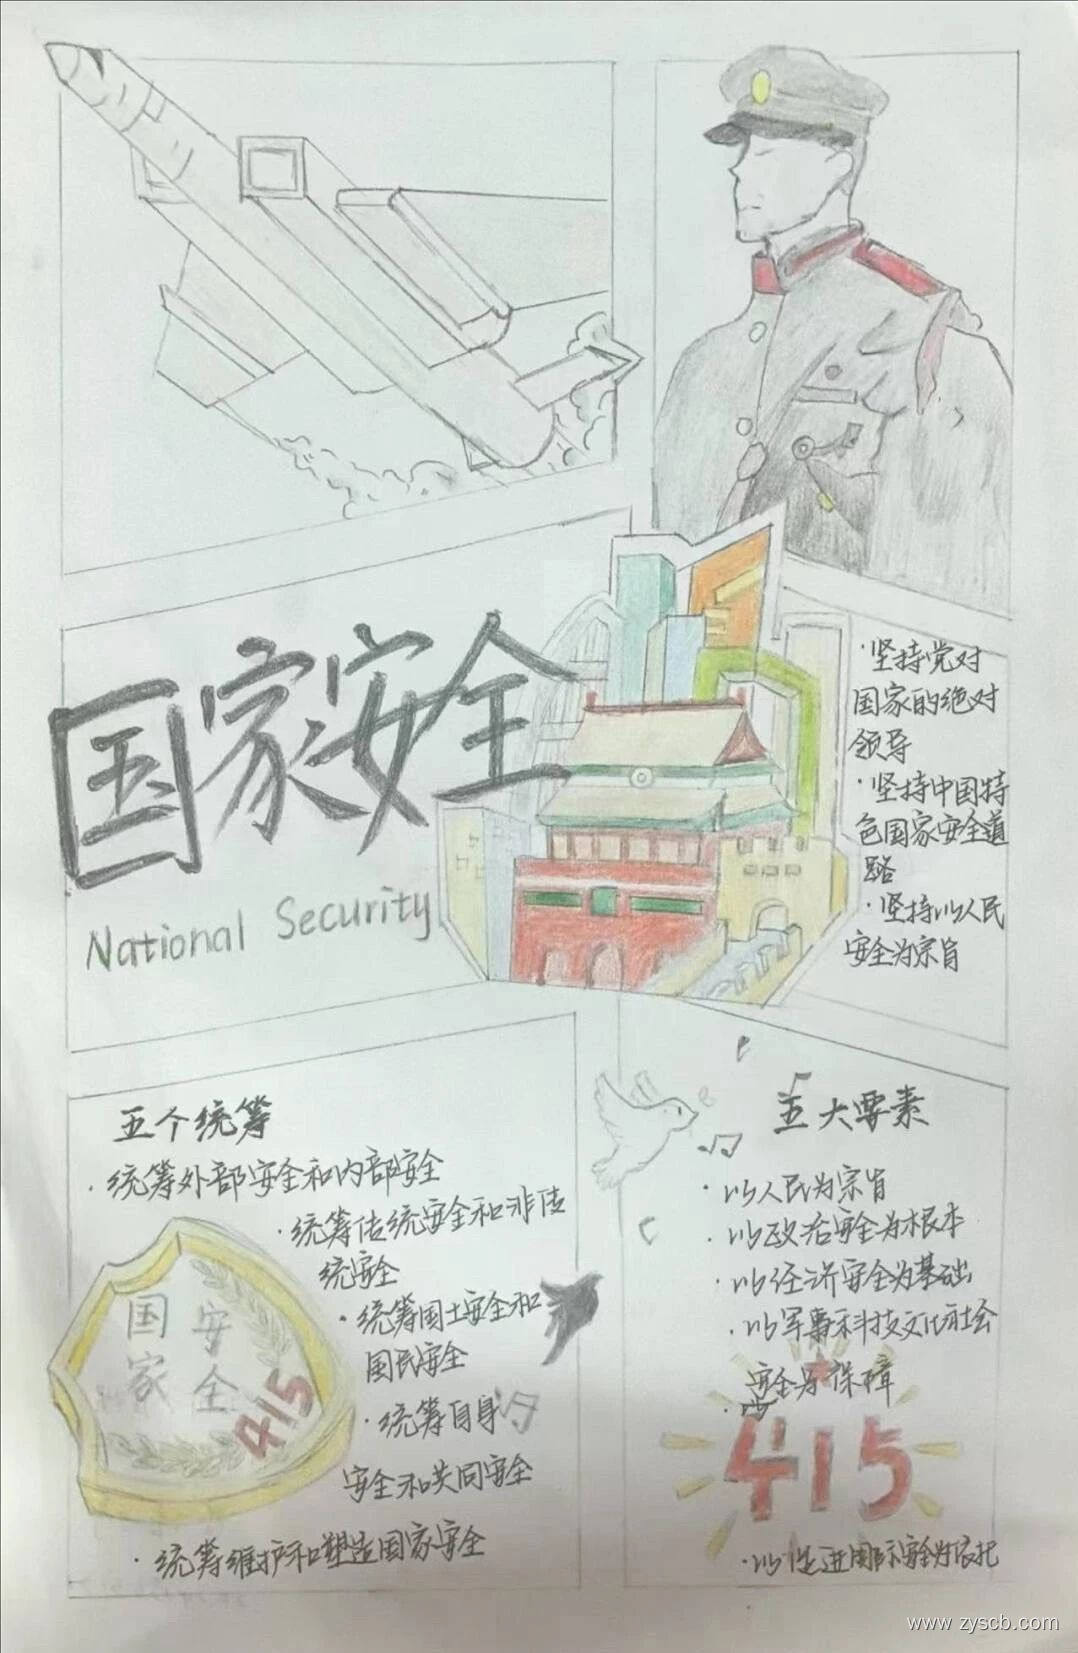 国家安全
National Security
·坚持党对
国家的绝对
领导
·坚持中国特
色国家安全道
路
·坚持以人民
安全为宗旨
五个统筹
·统筹外部安全和内部安全
·统筹传统安全和非传
统安全
·统筹国土安全和
国民安全
·统筹自身
安全和共同安全
·统筹维护和塑造国家安全
国家
安全
415
五大要素
·以人民为宗旨
·以政治安全为根本
·以经济安全为基础
·以军事科技文化社会
安全为保障
415
·以促进国际安全为依托
www.zyscb.com